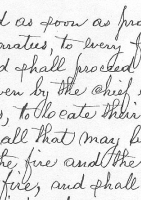 d as soon as pro
aratus, to every f
d shall proceed
ven by the chief
, to locate their
all that may be
the fire and the
fire, and shall